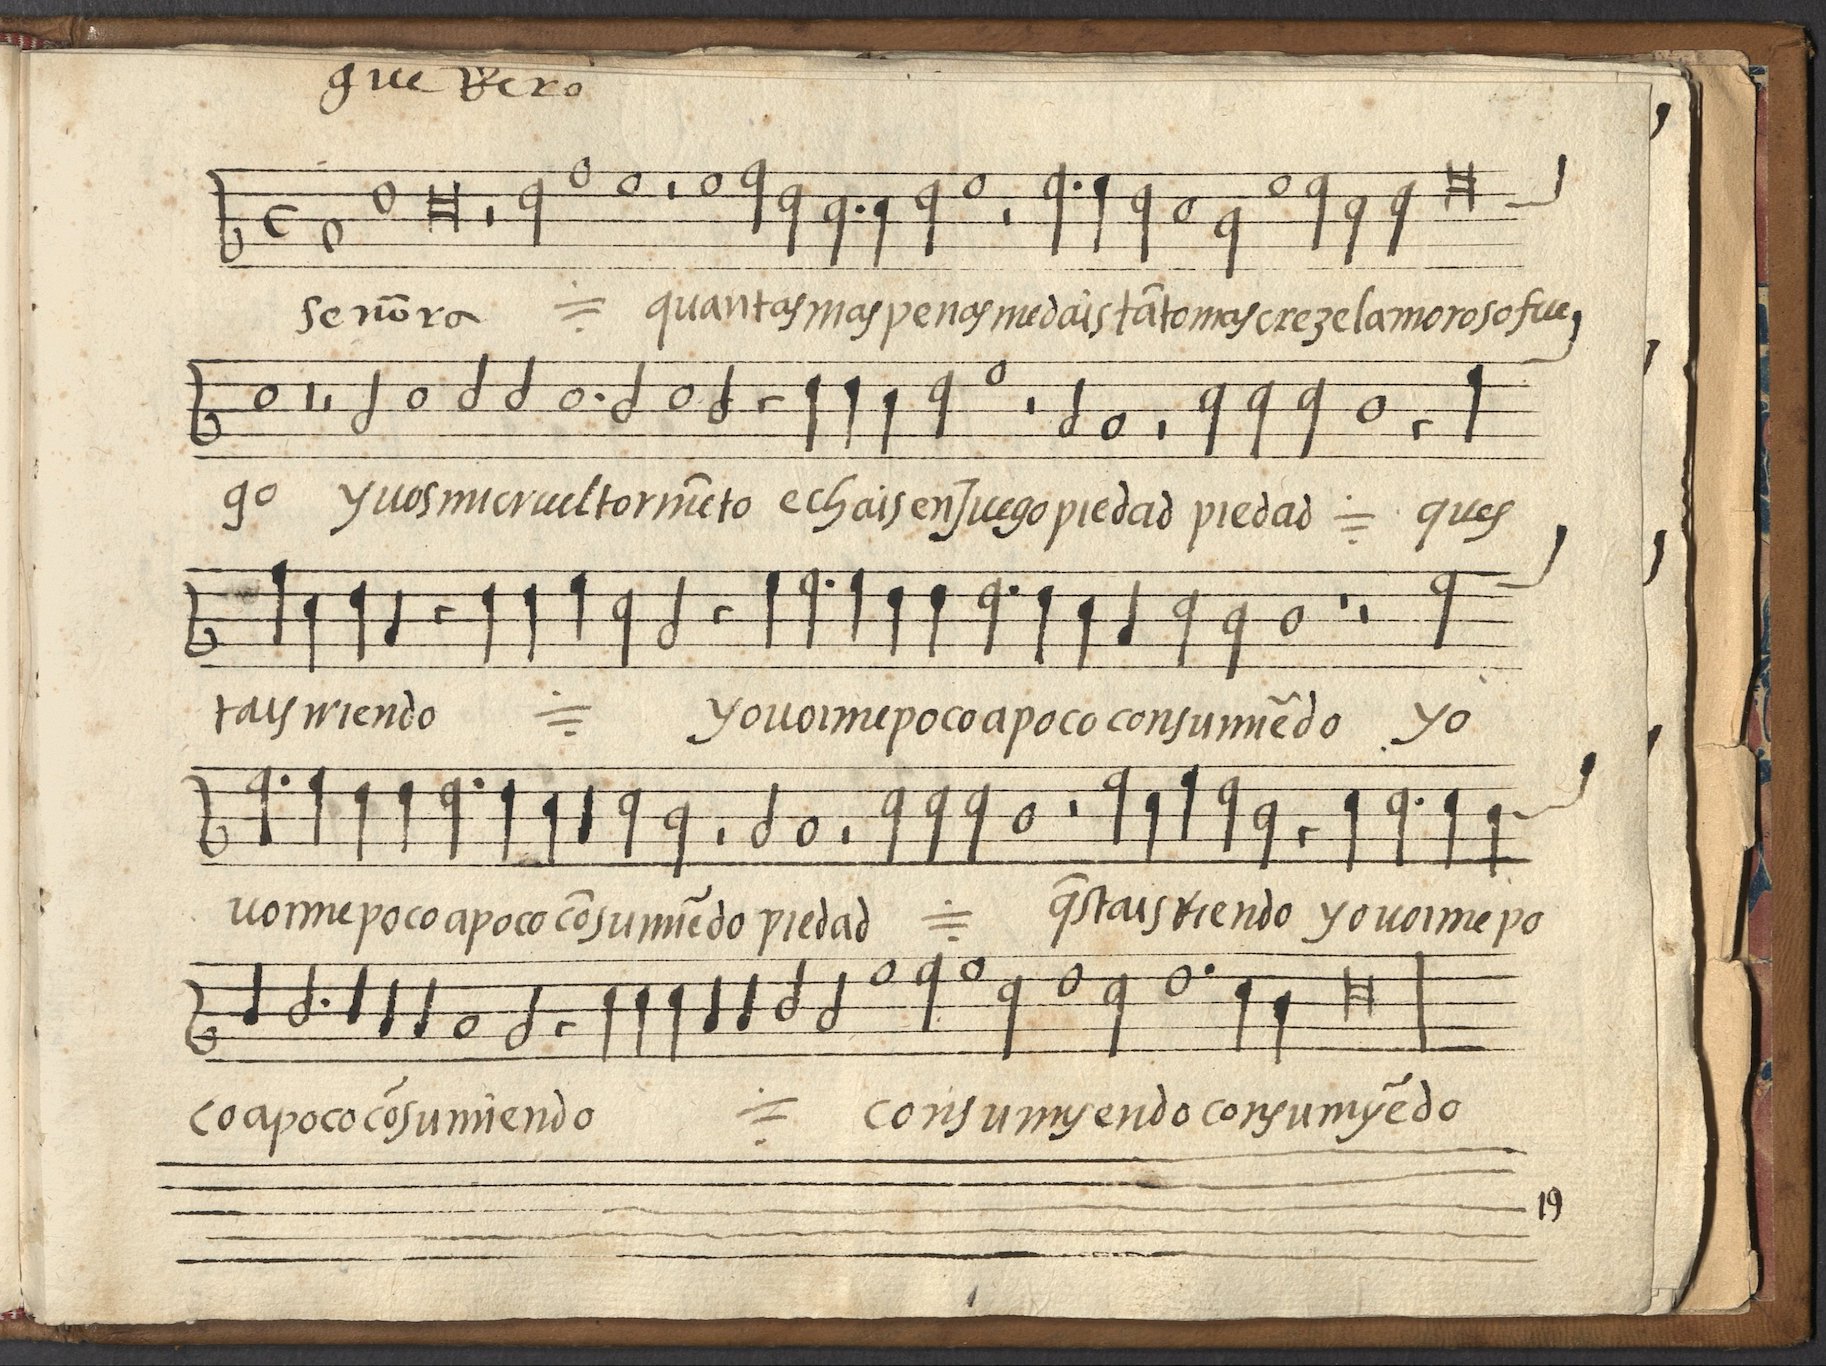 gueRero
señora quantas mas penas me dais tãto mas creze lamoroso fue
go y uos mi cruel tormẽto echais en Juego piedad piedad ques
tais rriendo yo uoime poco a poco consumiẽdo yo
uoime poco a poco cõsumiẽdo piedad q̃stais Riendo yo uoime po
co a poco cõsumiendo consumyendo consumyẽdo
19